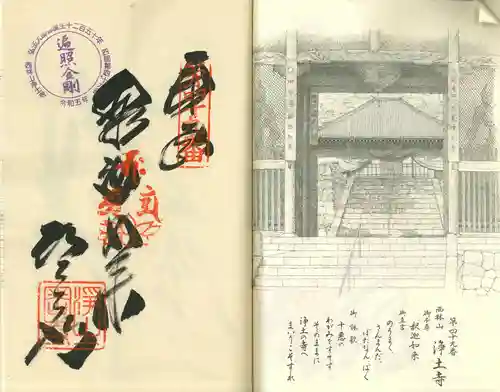 第四十九番
西林山 浄土寺
御本尊
釈迦如来
御真言
のうまく
さんまんだ
ばだなん ばく
御詠歌
十悪の
わがみをすてず
そのままに
浄土の寺へ
まいりこそすれ
釈迦如来
浄土寺
遍照金剛
令和五年